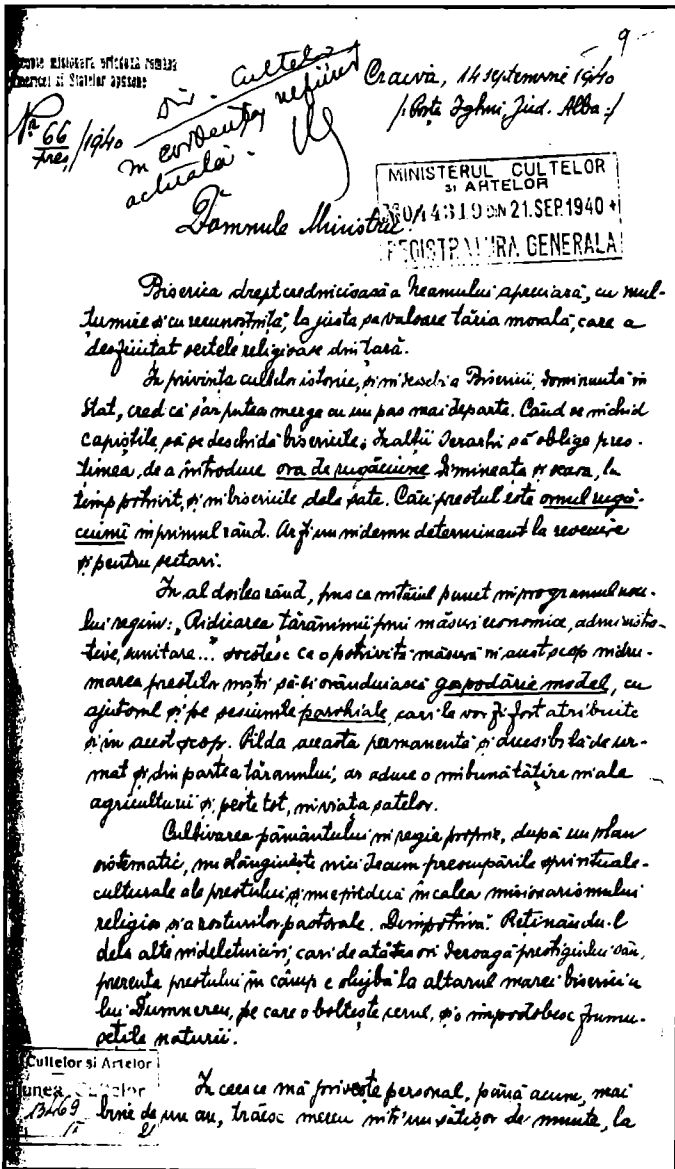 9
misionară ortodoxă română
Americei și Statelor apusene
Nr. 66/pres./1940
Dir. Cultelor
În evidența
actuală.
Craiva, 14 septemvrie 1940
/: Poșta Ighiu, Jud. Alba :/
MINISTERUL CULTELOR
SI ARTELOR
DIN 21.SEP.1940
REGISTRATURA GENERALA
Domnule Ministru!
Biserica dreptcredincioasă a Neamului apreciară, cu mul-
țumire și cu recunoștință, la justa sa valoare tăria morală, care a
desființat sectele religioase din țară.
În privința cultelor istorice, și îndeosebi a Bisericii, dominantă în
Stat, cred că s'ar putea merge cu un pas mai departe. Când se închid
capiștile, să se deschidă bisericile; Înalții Ierarhi să oblige preo-
țimea, de a introduce ora de rugăciune dimineața și seara, la
timp potrivit, și în bisericile dela sate. Căci preotul este omul rugă-
ciunii în primul rând. Ar fi un îndemn determinant la revenire
și pentru sectari.
În al doilea rând, pus ca întâiul punct în programul nou-
lui regim: „Ridicarea țărănimii prin măsuri economice, administra-
tive, sanitare..." socotesc ca o potrivită măsură în acest scop îndru-
marea preoților noștri să-și orânduiască gospodărie model, cu
ajutorul și pe sesiunile parohiale, cari le vor fi fost atribuite
și în acest scop. Pilda aceasta permanentă și accesibilă de ur-
mat și din partea țăranului, ar aduce o îmbunătățire în ale
agriculturii și, peste tot, în viața satelor.
Cultivarea pământului în regie proprie, după un plan
sistematic, nu stânginește nici decum preocupările spirituale-
culturale ale preotului și nu e piedică în calea misionarismului
religios și a rosturilor pastorale. Dimpotrivă: Reținându-l
dela alte îndeletniciri, cari de atâtea ori deroagă prestigiului său,
prezența preotului în câmp e slujbă la altarul marei biserici a
lui Dumnezeu, pe care o boltește cerul, și o împodobesc frumu-
sețile naturii.
Cultelor si Artelor
unea Cultelor
13469
În ceeace mă privește personal, până acum, mai
bine de un an, trăesc mereu într'un sătișor de munte, la